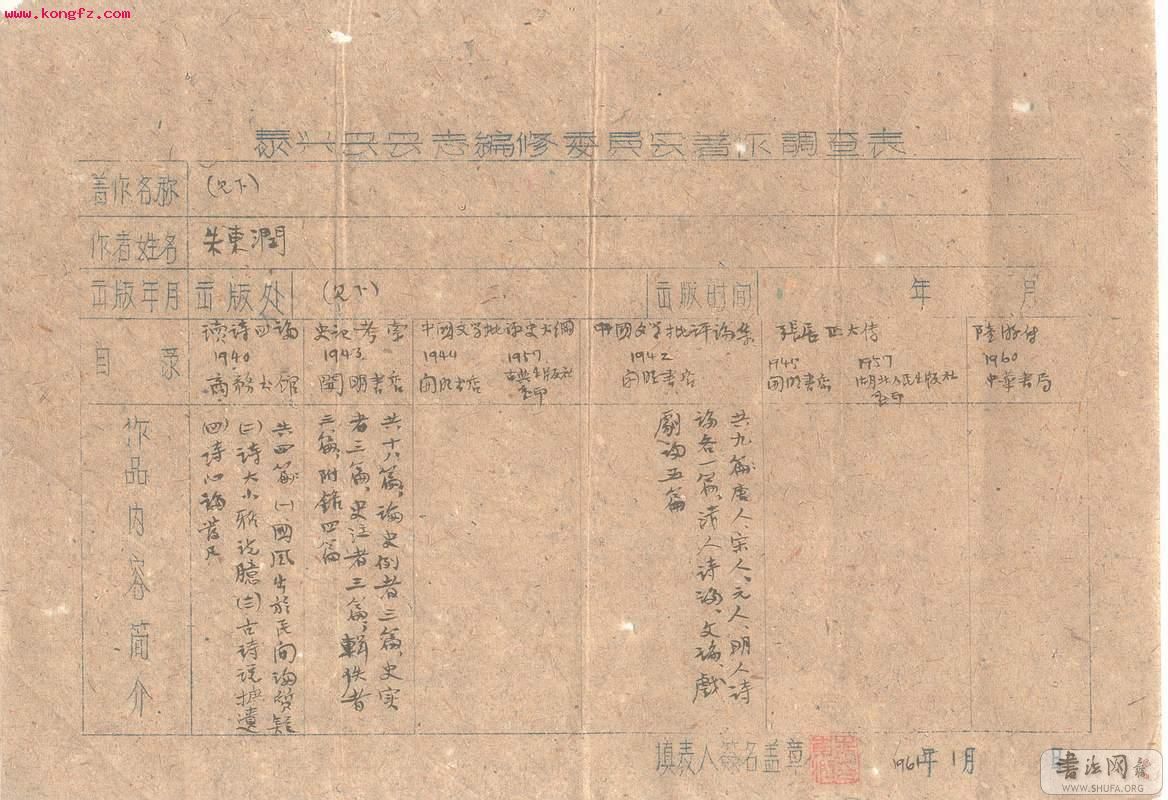 www.kongfz.com
泰兴县县志编修委员会著作調查表
著作名称 (见下)
作者姓名 朱東潤
出版年月 出版处 (见下) 出版时间 年 月
目录
读诗四論
1940
商務书館
史记考索
1943
開明書店
中國文学批评史大綱
1944
開明書店
1957
古典出版社
重印
中國文学批评論集
1942
開明書店
張居正大传
1945
開明書店
1957
湖北人民出版社
重印
陸游传
1960
中華書局
作品内容简介
共四篇(一)國风出於民间論质疑
(二)诗大小雅说臆(三)古诗说摭遗
(四)诗心論发凡
共十八篇,論史例者三篇,史实
者三篇,史注者三篇,輯佚者
三篇,附錄四篇
共九篇唐人、宋人、元人、明人诗
論各一篇,清人诗論、文論、戲
劇論五篇
填表人簽名盖章
1961年1月 日
书法网
WWW.SHUFA.ORG